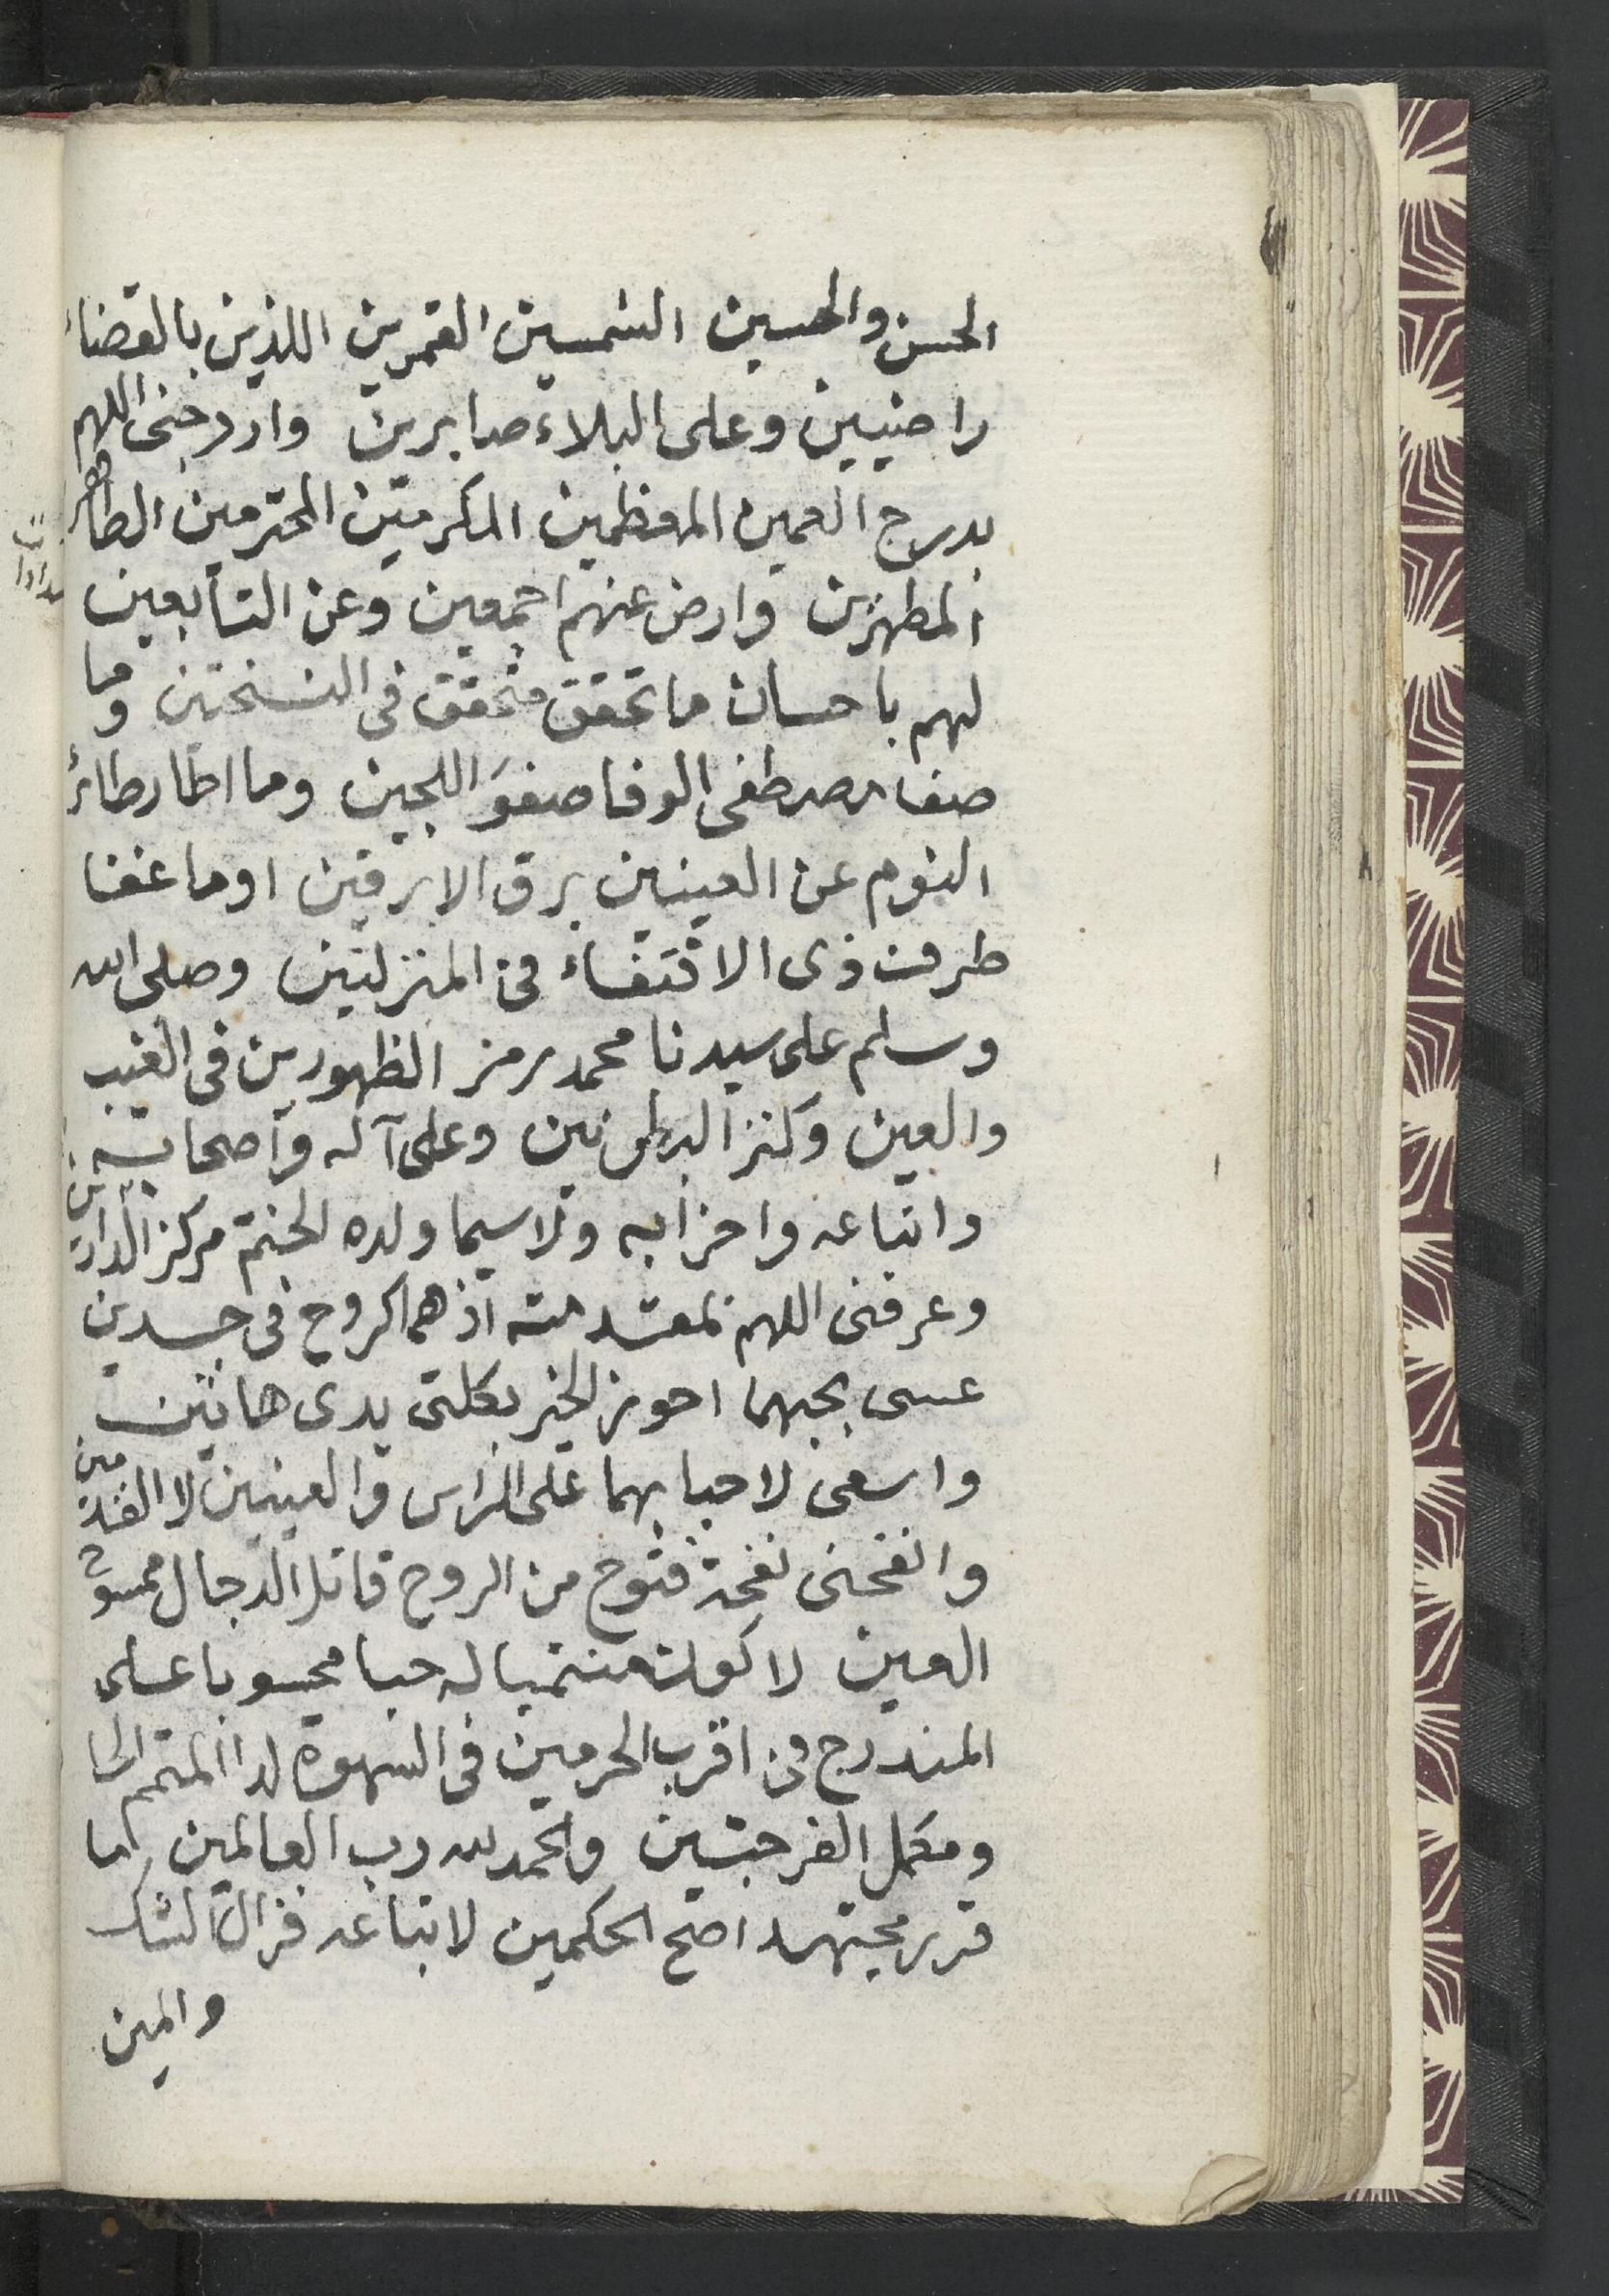 الحسن والحسين الشمسين القمرين اللذين بالقضاء
راضيين وعلى البلاء صابرين وادرجنى اللهم
بدرج العمين المعظمين المكرمين المحترمين الطاهر
المطهرين وارض عنهم اجمعين وعن التابعين
لهم باحسان ما تحقق متحقق فى النسختين وما
صفا مصطفى الوفا صفو اللجين وما اطار طائر
النوم عن العينين برق الابرقين او ما غفا
طرف ذى الاقتفاء فى المنزلتين وصلى الله
وسلم على سيدنا محمد رمز الظهورين فى الغيب
والعين وكنز البطونين وعلى آله واصحابه
واتباعه واحزابه ولا سيما ولده الختم مركز الدائرتين
وعرفنى اللهم بمعتمده اذ هما كروح فى جسدين
عسى بحبهما احوز الخير بكلتى يدى هاتين
واسعى لاحبابهما على الراس والعينين لا القدمين
وانفحنى نفحة فتوح من الروح قاتل الدجال ممسوح
العين لا كون منتميا له حبا محسوبا على
المندرج فى اقرب الحرمين فى السهوة لدا المتمم
ومكمل الفرجتين والحمد لله رب العالمين كما
قرر مجتهد اصح الحكمين لاتباعه فزال الشك
والمين